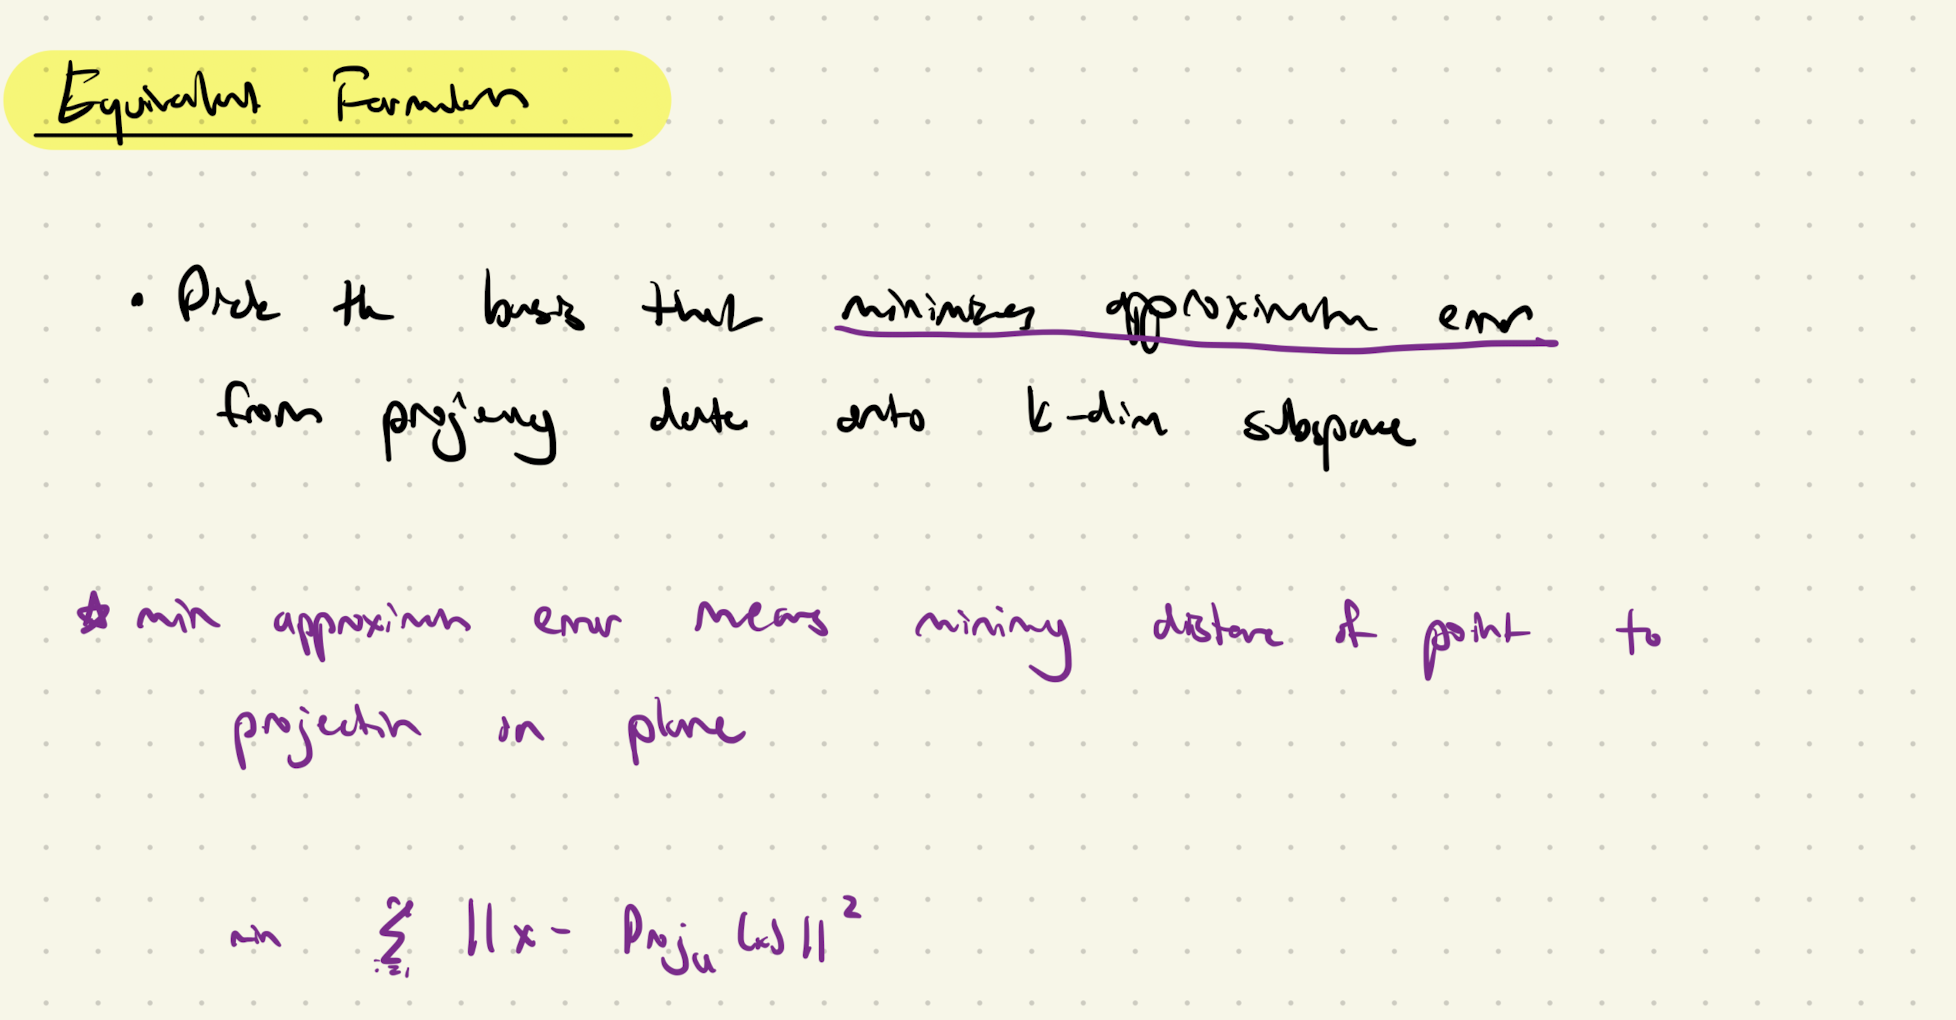 Equivalent Formulation
• Pick the basis that minimizes approximation error
from projecting data onto k-dim subspace
☆ min approximation error means minimizing distance of point to
projection in plane
min Σ_{i=1}^{n} ||x - Proj_u (x)||²